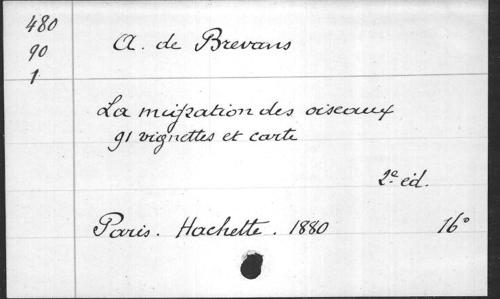 480
90
1
A. de Brevans
La migration des oiseaux
91 vignettes et carte
2e éd.
Paris. Hachette. 1880 16°